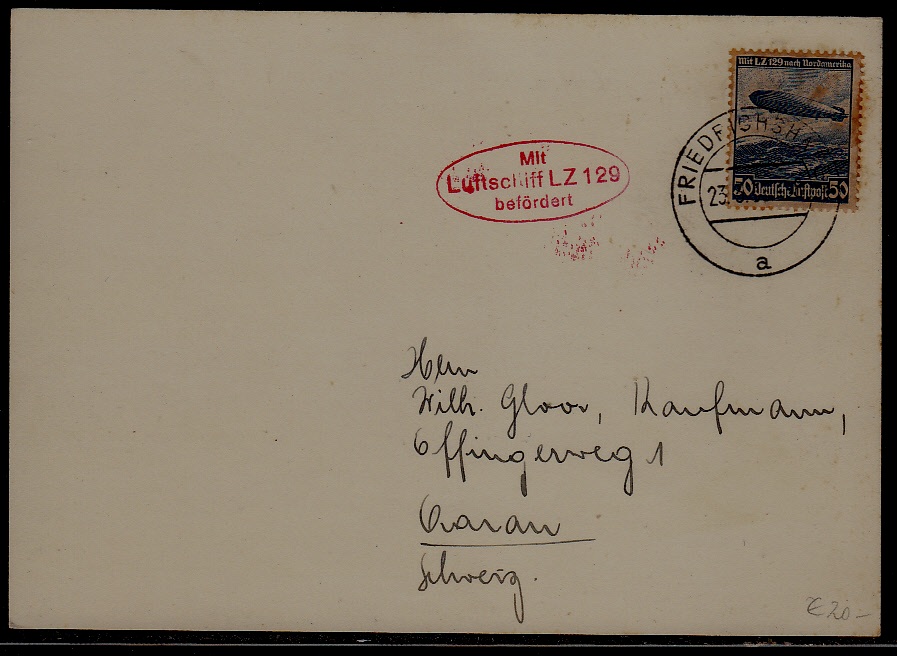 Mit LZ 129 nach Nordamerika
50 Deutsche Luftpost 50
FRIEDRICHSH
23.
a
Mit
Luftschiff LZ 129
befördert
Herrn
Wilh. Gloor, Kaufmann,
Effingerweg 1
Aarau
Schweiz.
€ 20-